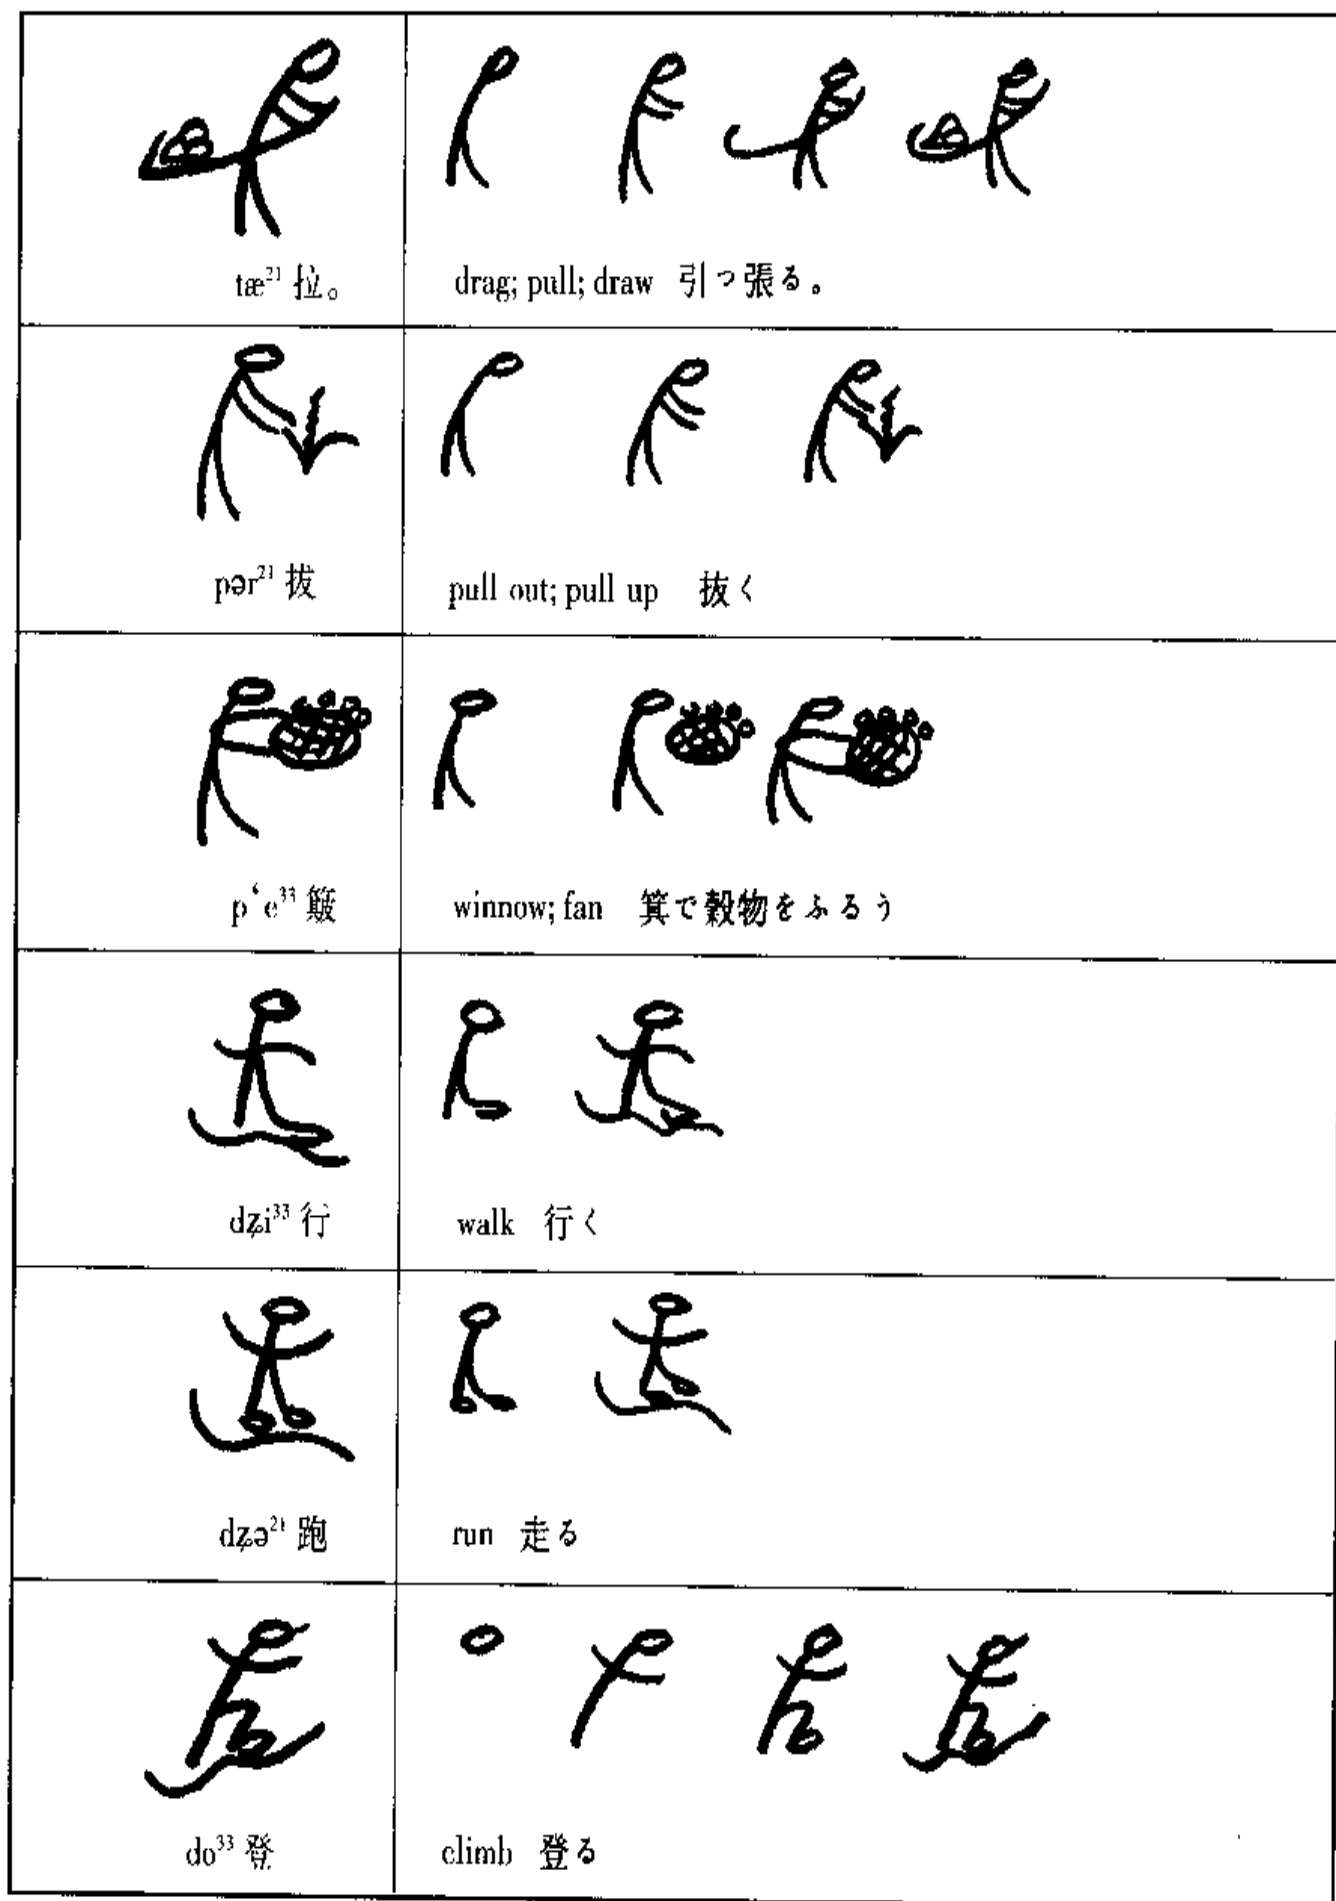 tæ²¹ 拉。
drag; pull; draw 引っ張る。
pər²¹ 拔
pull out; pull up 抜く
p‘e³³ 簸
winnow; fan 箕で穀物をふるう
dʑi³³ 行
walk 行く
dʑə²¹ 跑
run 走る
do³³ 登
climb 登る